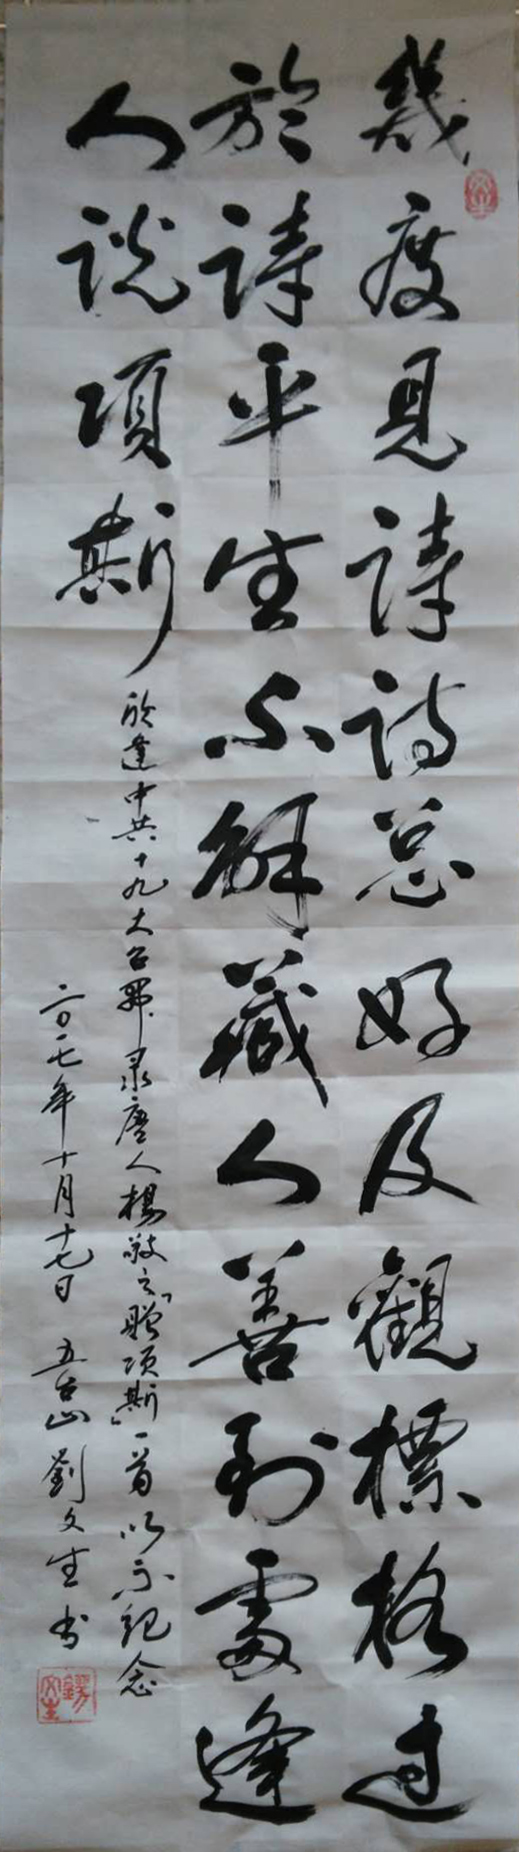 幾度見詩詩总好及觀標格过
於詩平生不解藏人善到處逢
人说項斯
欣逢中共十九大召开录唐人楊敬之「贈项斯」一首以示纪念
二〇一七年十月十七日 五台山劉文生书